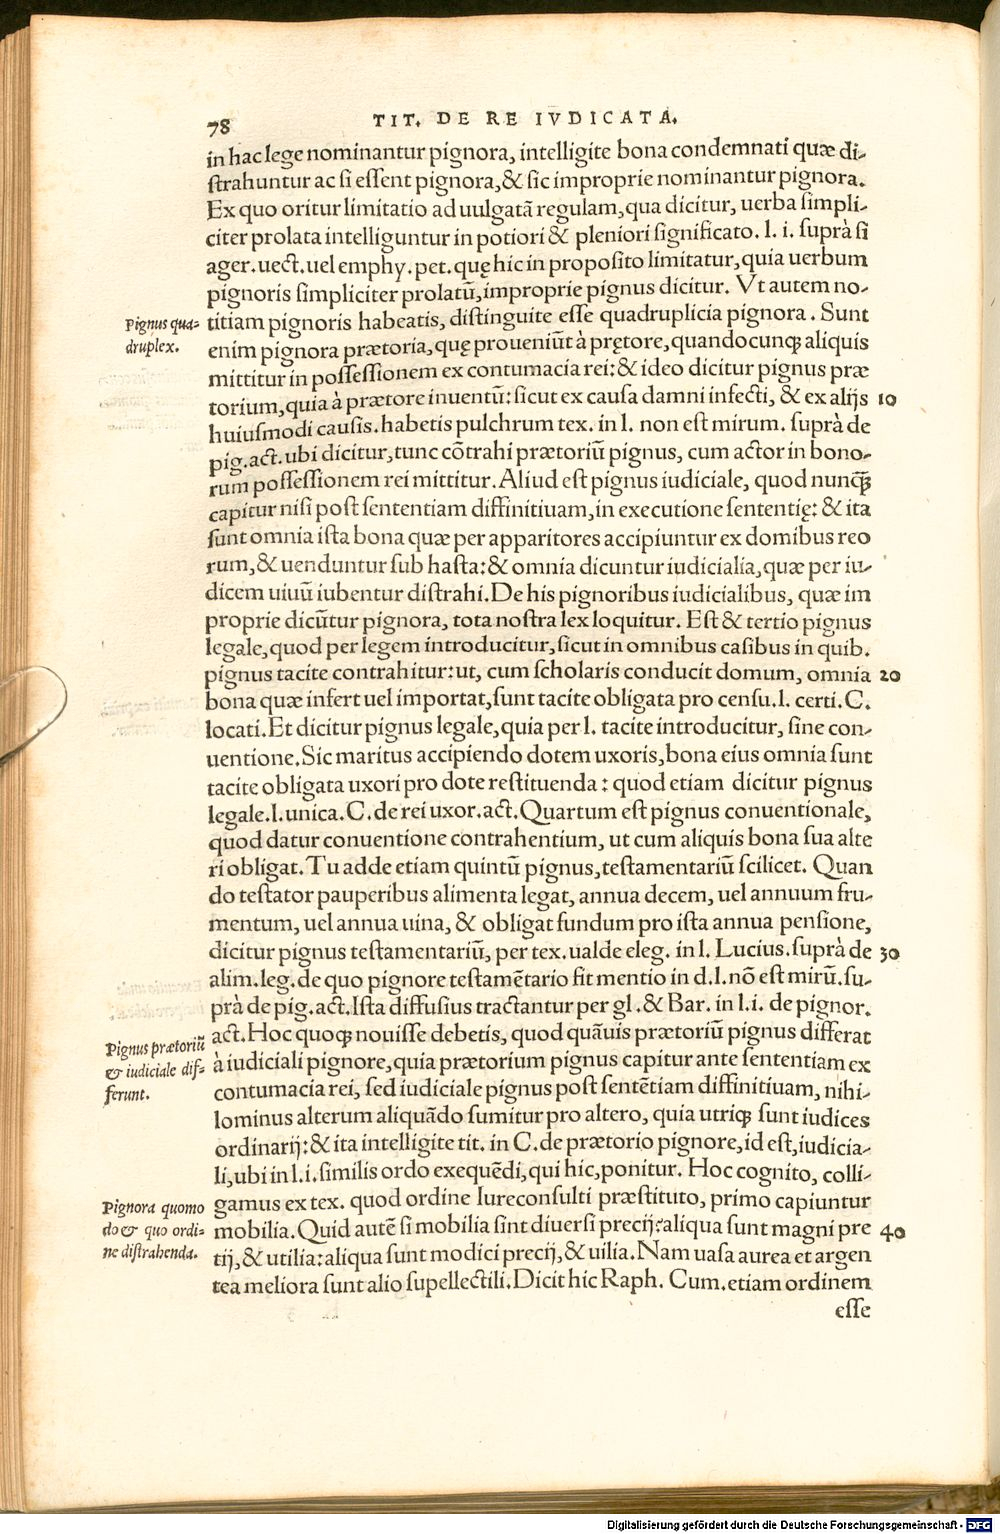 78
TIT. DE RE IVDICATA.
in hac lege nominantur pignora, intelligite bona condemnati quæ di-
ſtrahuntur ac ſi eſſent pignora, & ſic improprie nominantur pignora.
Ex quo oritur limitatio ad uulgatã regulam, qua dicitur, uerba ſimpli-
citer prolata intelliguntur in potiori & pleniori ſignificato. l. i. ſuprà ſi
ager. uect. uel emphy. pet. quę hic in propoſito limitatur, quia uerbum
pignoris ſimpliciter prolatũ, improprie pignus dicitur. Vt autem no-
Pignus qua-
druplex.
titiam pignoris habeatis, diſtinguite eſſe quadruplicia pignora. Sunt
enim pignora prætoria, quę proueniũt à prętore, quandocunqꝫ aliquis
mittitur in poſſeſſionem ex contumacia rei: & ideo dicitur pignus præ
torium, quia à prætore inuentũ: ſicut ex cauſa damni infecti, & ex alijs 10
huiuſmodi cauſis. habetis pulchrum tex. in l. non eſt mirum. ſuprà de
pig. act. ubi dicitur, tunc cõtrahi prætoriũ pignus, cum actor in bono-
rum poſſeſſionem rei mittitur. Aliud eſt pignus iudiciale, quod nunq̃ꝫ
capitur niſi poſt ſententiam diffinitiuam, in executione ſententię: & ita
ſunt omnia iſta bona quæ per apparitores accipiuntur ex domibus reo
rum, & uenduntur ſub haſta: & omnia dicuntur iudicialia, quæ per iu-
dicem uiuũ iubentur diſtrahi. De his pignoribus iudicialibus, quæ im
proprie dicũtur pignora, tota noſtra lex loquitur. Eſt & tertio pignus
legale, quod per legem introducitur, ſicut in omnibus caſibus in quib.
pignus tacite contrahitur: ut, cum ſcholaris conducit domum, omnia 20
bona quæ infert uel importat, ſunt tacite obligata pro cenſu. l. certi. C.
locati. Et dicitur pignus legale, quia per l. tacite introducitur, ſine con-
uentione. Sic maritus accipiendo dotem uxoris, bona eius omnia ſunt
tacite obligata uxori pro dote reſtituenda: quod etiam dicitur pignus
legale. l. unica. C. de rei uxor. act. Quartum eſt pignus conuentionale,
quod datur conuentione contrahentium, ut cum aliquis bona ſua alte
ri obligat. Tu adde etiam quintũ pignus, teſtamentariũ ſcilicet. Quan
do teſtator pauperibus alimenta legat, annua decem, uel annuum fru-
mentum, uel annua uina, & obligat fundum pro iſta annua penſione,
dicitur pignus teſtamentariũ, per tex. ualde eleg. in l. Lucius. ſuprà de 30
alim. leg. de quo pignore teſtamẽtario fit mentio in d. l. nõ eſt mirũ. ſu-
prà de pig. act. Iſta diffuſius tractantur per gl. & Bar. in l. i. de pignor.
act. Hoc quoqꝫ nouiſſe debetis, quod quãuis prætoriũ pignus differat
Pignus prætoriũ
& iudiciale dif-
ferunt.
à iudiciali pignore, quia prætorium pignus capitur ante ſententiam ex
contumacia rei, ſed iudiciale pignus poſt ſentẽtiam diffinitiuam, nihi-
lominus alterum aliquãdo ſumitur pro altero, quia utriqꝫ ſunt iudices
ordinarij: & ita intelligite tit. in C. de prætorio pignore, id eſt, iudicia-
li, ubi in l. i. ſimilis ordo exequẽdi, qui hic, ponitur. Hoc cognito, colli-
Pignora quomo
do & quo ordi-
ne diſtrahenda.
gamus ex tex. quod ordine Iureconſulti præſtituto, primo capiuntur
mobilia. Quid autẽ ſi mobilia ſint diuerſi precij? aliqua ſunt magni pre 40
tij, & utilia: aliqua ſunt modici precij, & uilia. Nam uaſa aurea et argen
tea meliora ſunt alio ſupellectili. Dicit hic Raph. Cum. etiam ordinem
eſſe
Digitalisierung gefördert durch die Deutsche Forschungsgemeinschaft - DFG